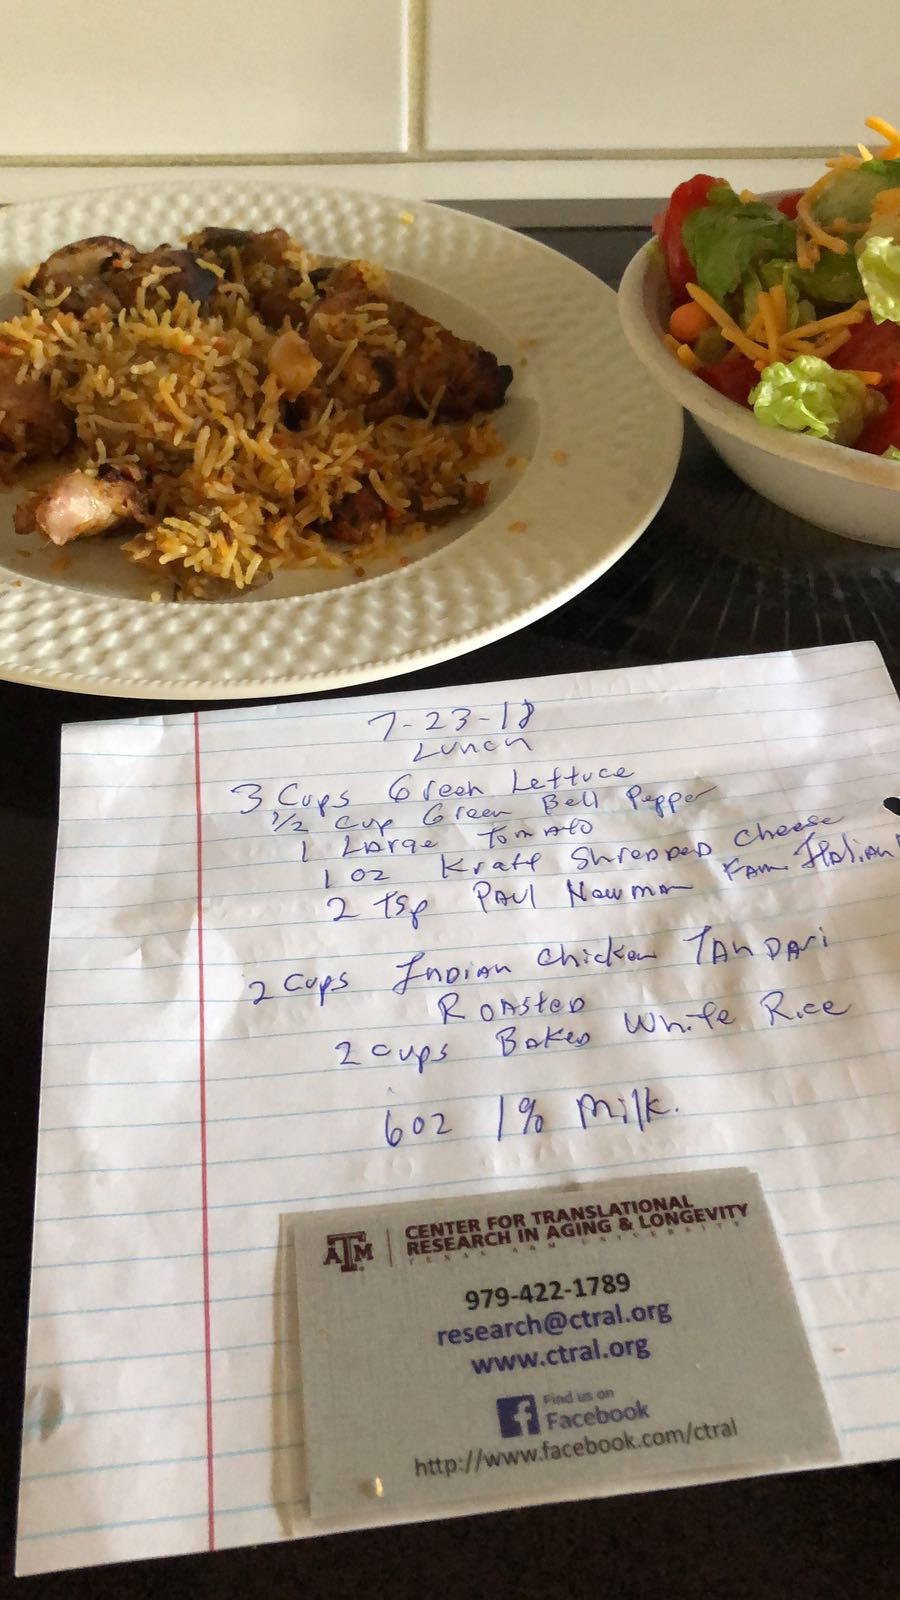 7-23-18
Lunch
3 Cups Green Lettuce
1/2 Cup Green Bell Pepper
1 Large Tomato
1 oz Kraft Shredded Cheese
2 Tsp Paul Newman Fam. Italian
2 Cups Indian Chicken TANDARi
Roasted
2 cups Baked White Rice
6oz 1% Milk.
ATM
CENTER FOR TRANSLATIONAL
RESEARCH IN AGING & LONGEVITY
TEXAS A&M UNIVERSITY
979-422-1789
research@ctral.org
www.ctral.org
Find us on
Facebook
http://www.facebook.com/ctral